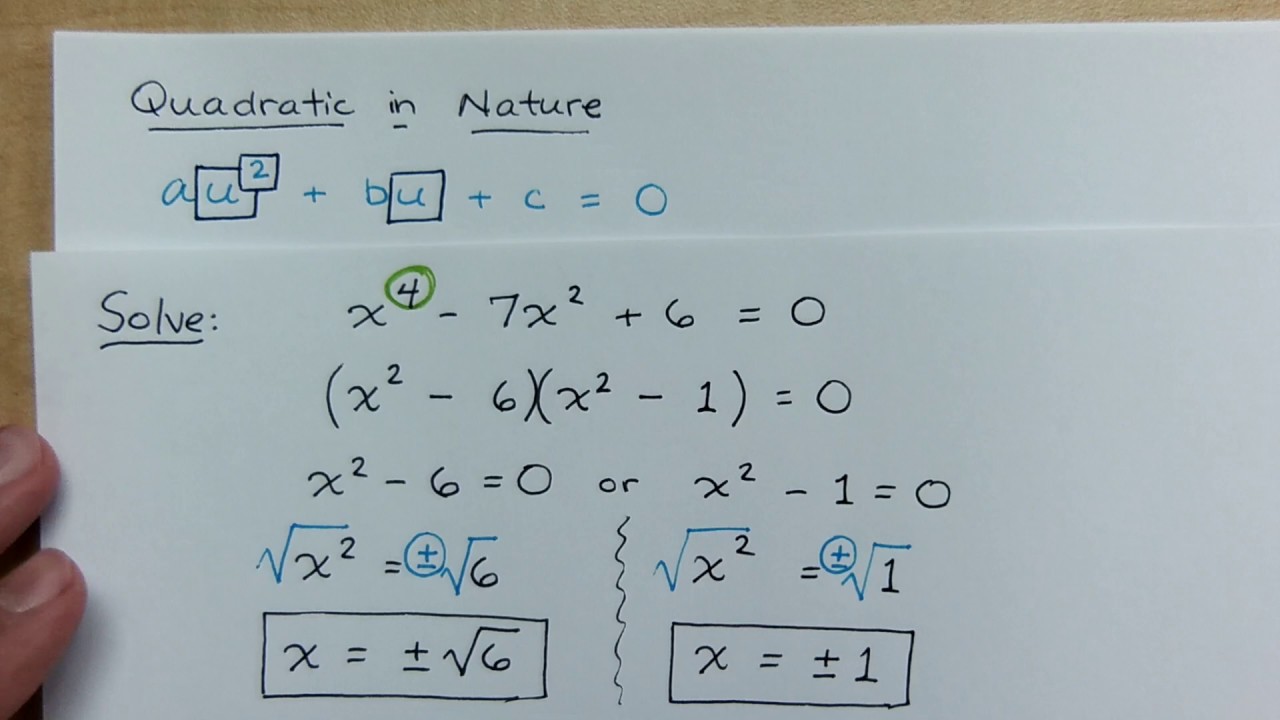 Quadratic in Nature
au² + bu + c = 0
Solve: x⁴ - 7x² + 6 = 0
(x² - 6)(x² - 1) = 0
x² - 6 = 0 or x² - 1 = 0
√x² = ±√6 √x² = ±√1
x = ±√6 x = ±1